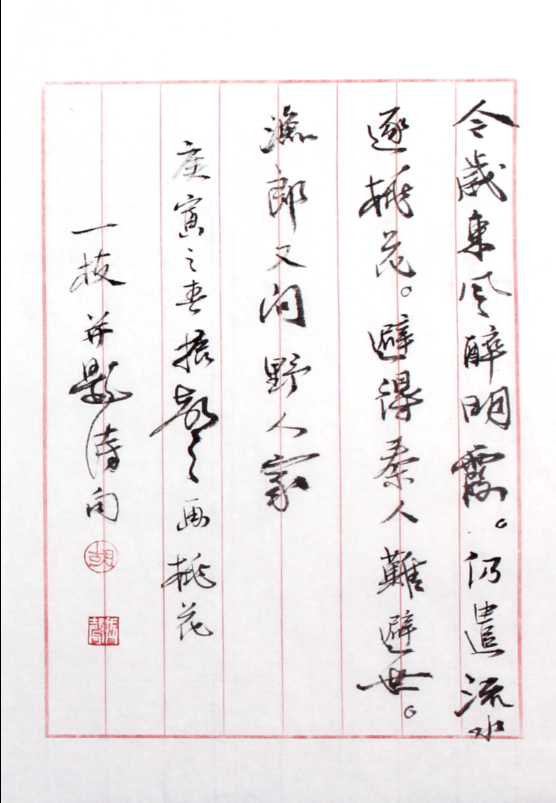 今歲東风醉明霞。仍遣流水
逐桃花。避得秦人難避世。
漁郎又问野人家
庚寅之春振聲画桃花
一枝并題詩句
胡
振聲